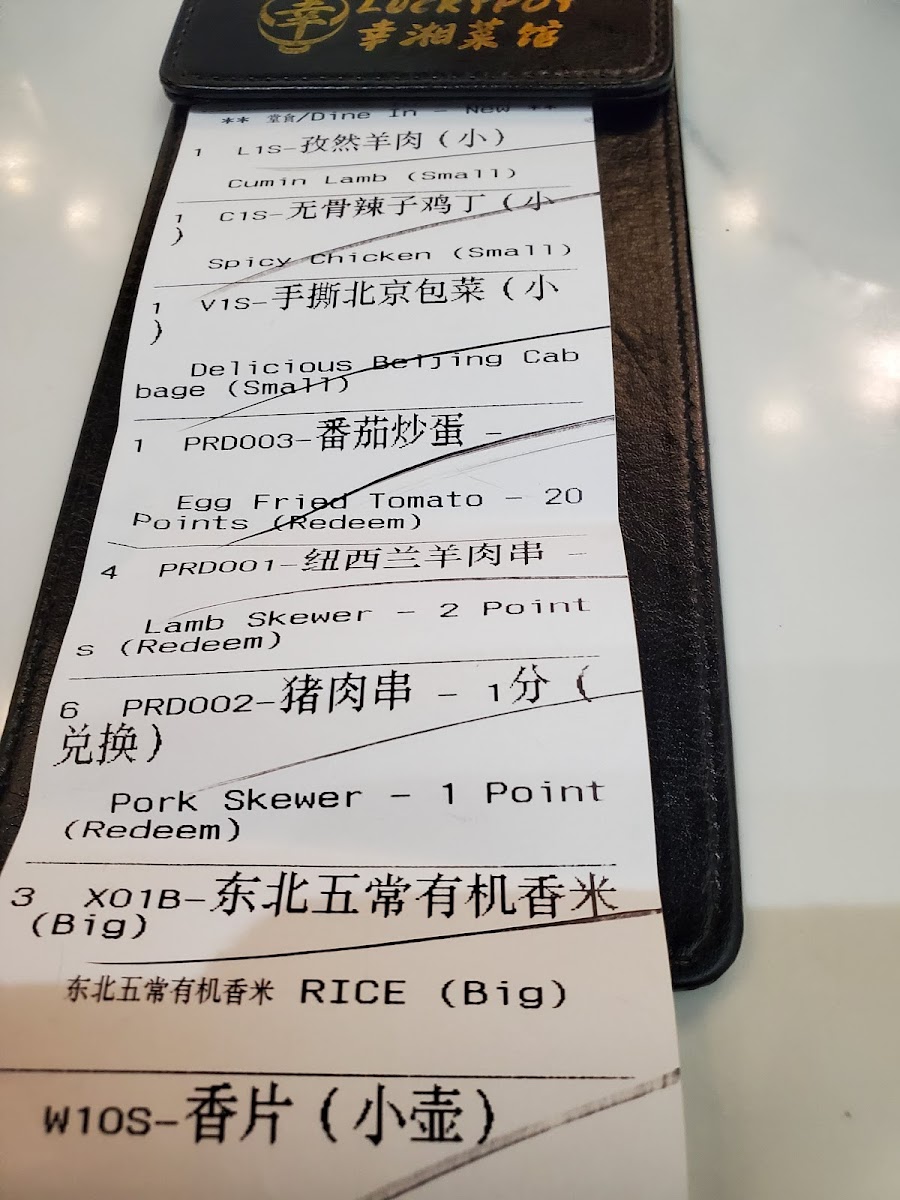 幸
LUCKYPOT
幸湘菜馆
** 堂食/Dine In - New **
1 L1S-孜然羊肉（小）
Cumin Lamb (Small)
1 C1S-无骨辣子鸡丁（小
）
Spicy Chicken (Small)
1 V1S-手撕北京包菜（小
）
Delicious Beijing Cab
bage (Small)
1 PRD003-番茄炒蛋 -
Egg Fried Tomato - 20
Points (Redeem)
4 PRD001-纽西兰羊肉串 -
Lamb Skewer - 2 Point
s (Redeem)
6 PRD002-猪肉串 - 1分（
兑换）
Pork Skewer - 1 Point
(Redeem)
3 X01B-东北五常有机香米
(Big)
东北五常有机香米 RICE (Big)
W10S-香片（小壶）